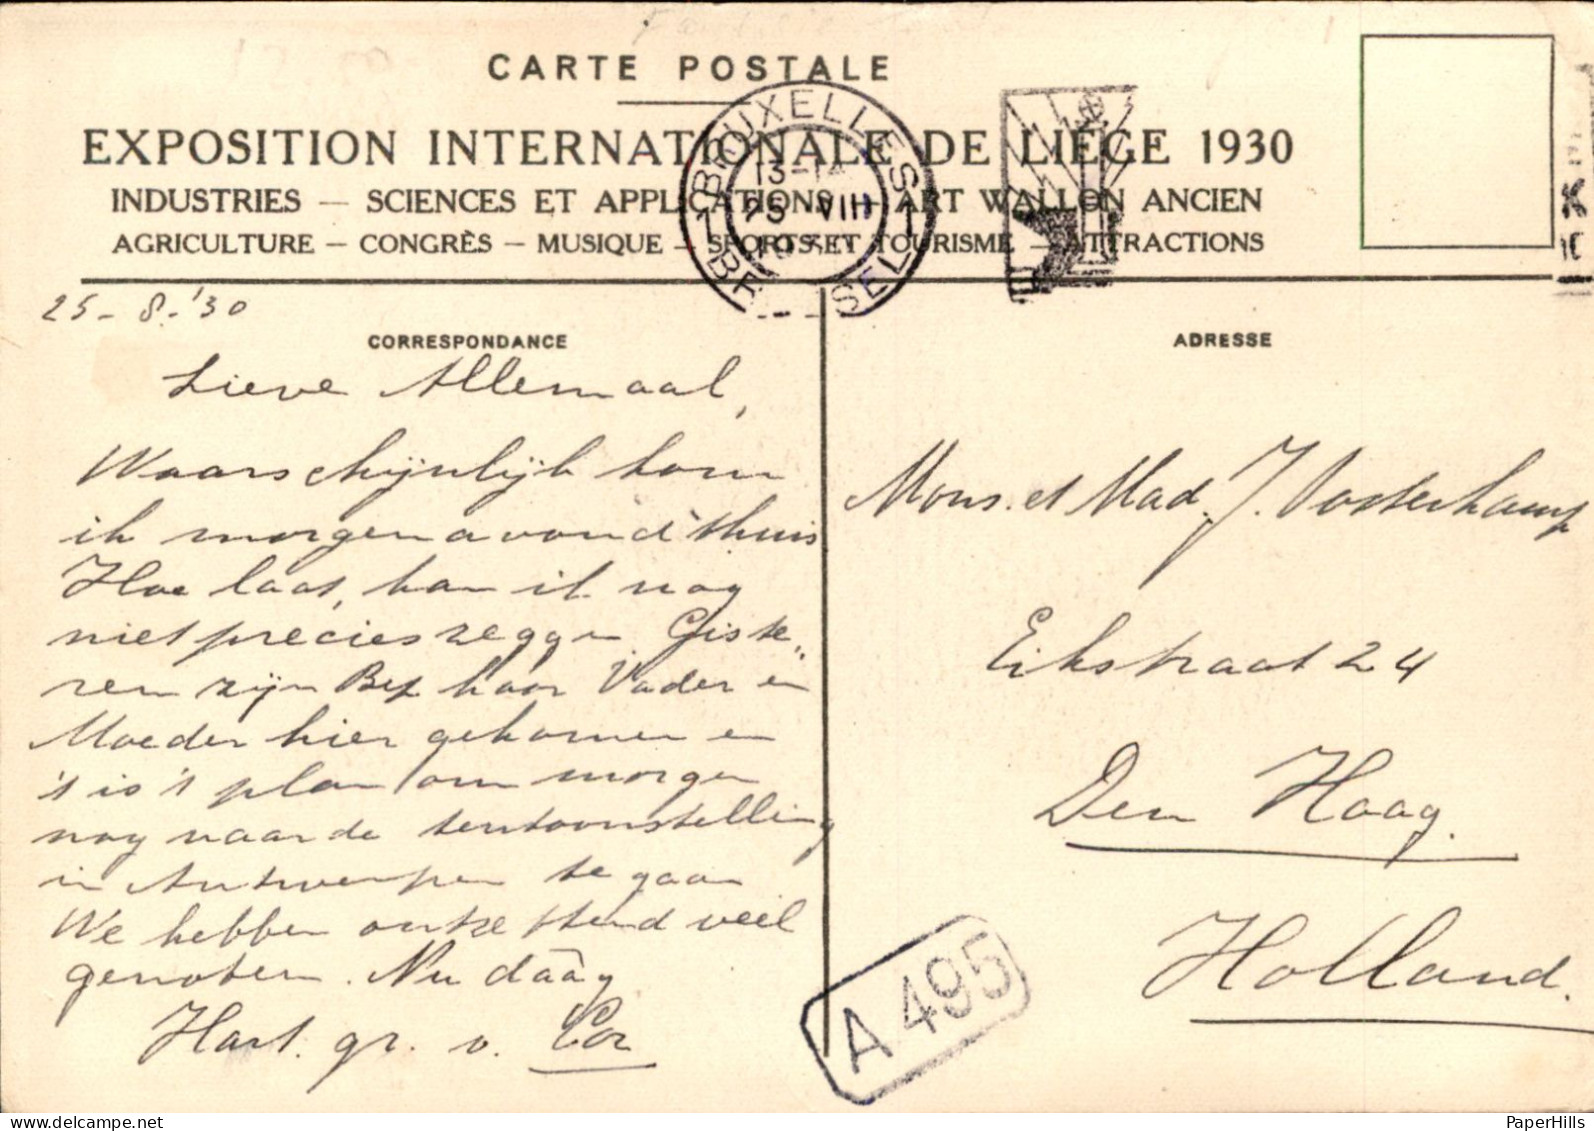 CARTE POSTALE
EXPOSITION INTERNATIONALE DE LIÉGE 1930
INDUSTRIES — SCIENCES ET APPLICATIONS — ART WALLON ANCIEN
AGRICULTURE — CONGRÈS — MUSIQUE — SPORTS ET TOURISME — ATTRACTIONS
BRUXELLES
13-14
25 VIII
BR SEL
25-8-'30
CORRESPONDANCE
Lieve Allemaal,
Waarschijnlijk kom
ik morgenavond thuis
Hoe laat, kan ik nog
niet precies zeggen. Giste„
ren zijn Bep haar Vader en
Moeder hier gekomen en
't is 't plan om morgen
nog naar de tentoonstelling
in Antwerpen te gaan
We hebben ontzettend veel
genoten. Nu dáág
Hart. gr. v. Cor
ADRESSE
Mons. et Mad. J. Oosterkamp
Eikstraat 24
Den Haag.
Holland.
A 495
PaperHills